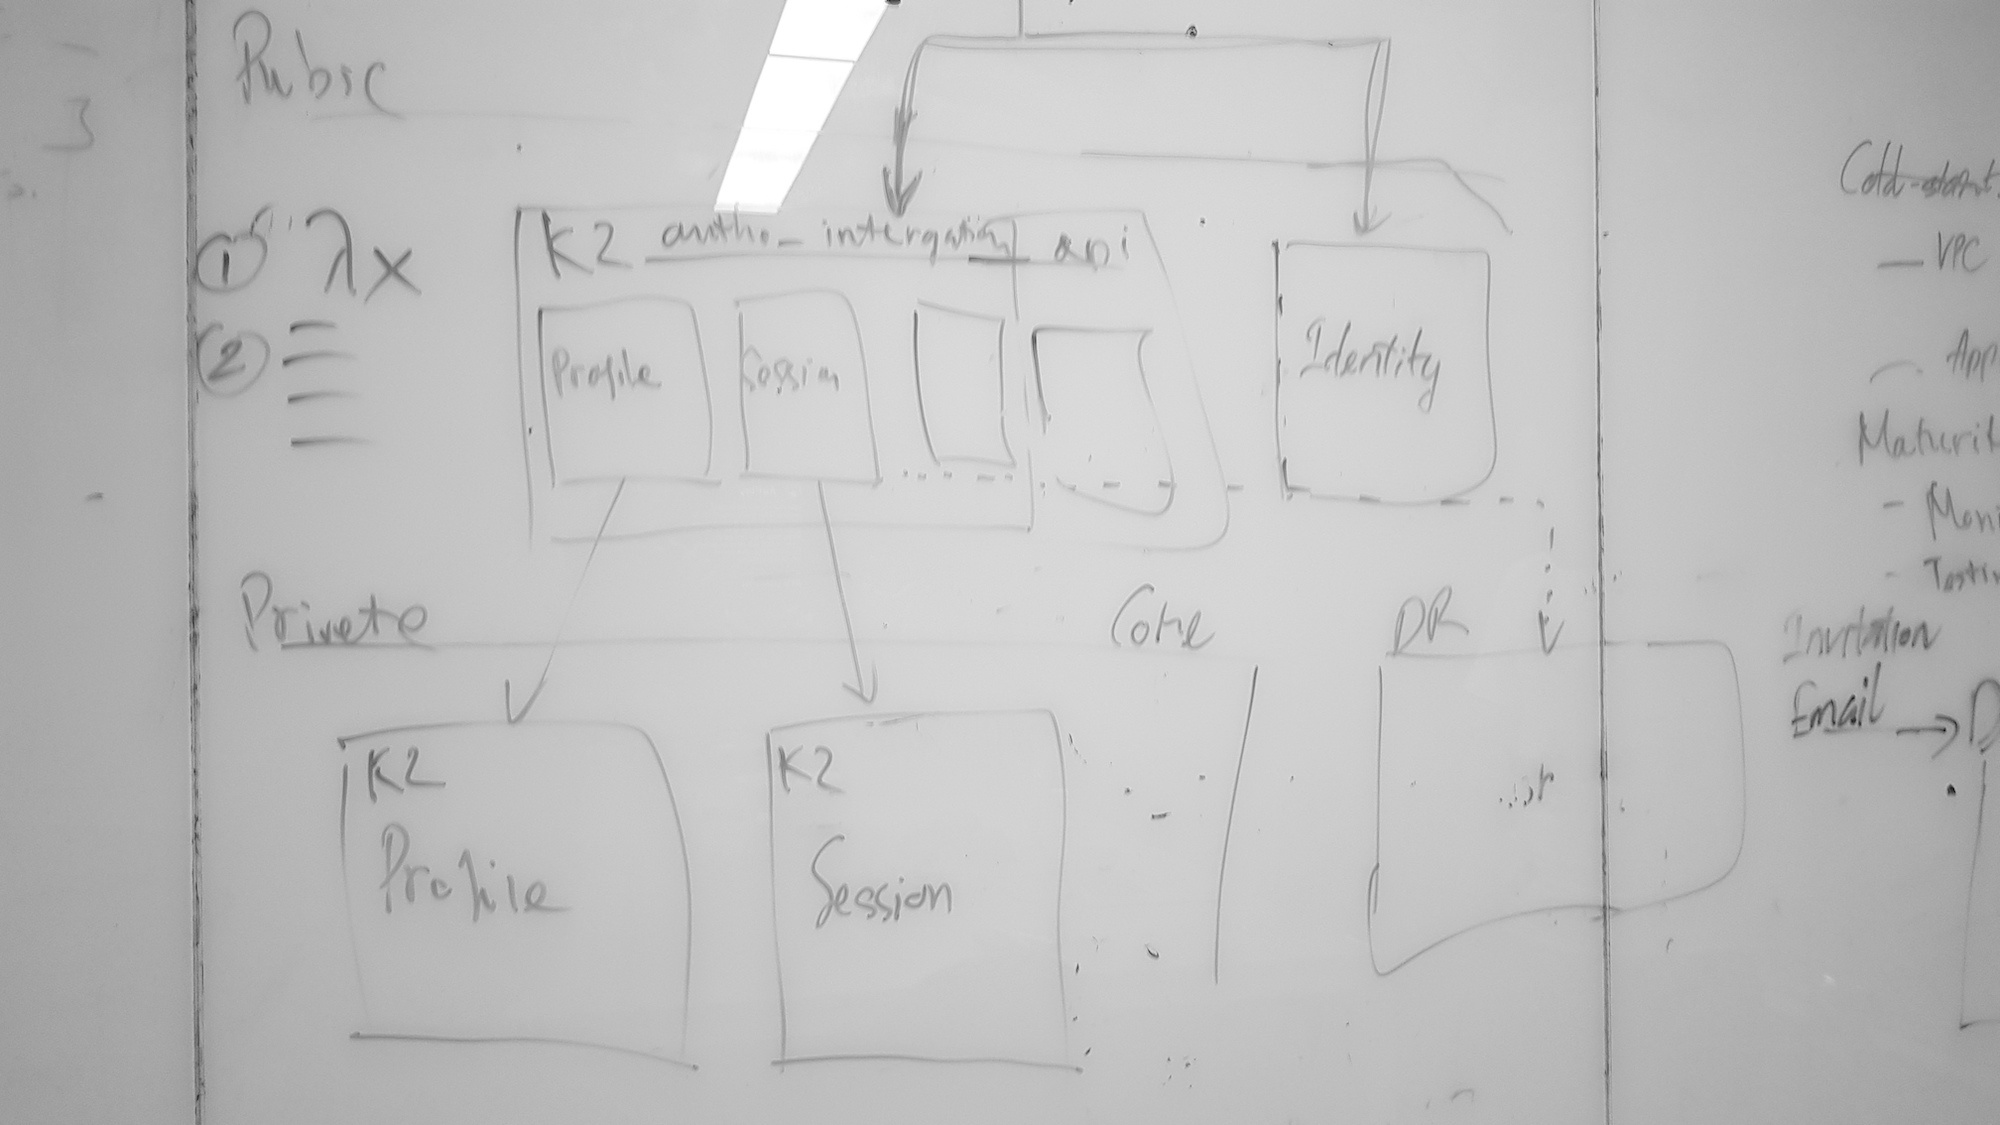 3
Pubic
① λx
②
K2 autho_intergation api
Profile
Session
Identity
Private
Core
DR
K2
Profile
K2
Session
Cold-start
— VPC
App
Maturit
- Moni
- Testin
Invitation
Email → D